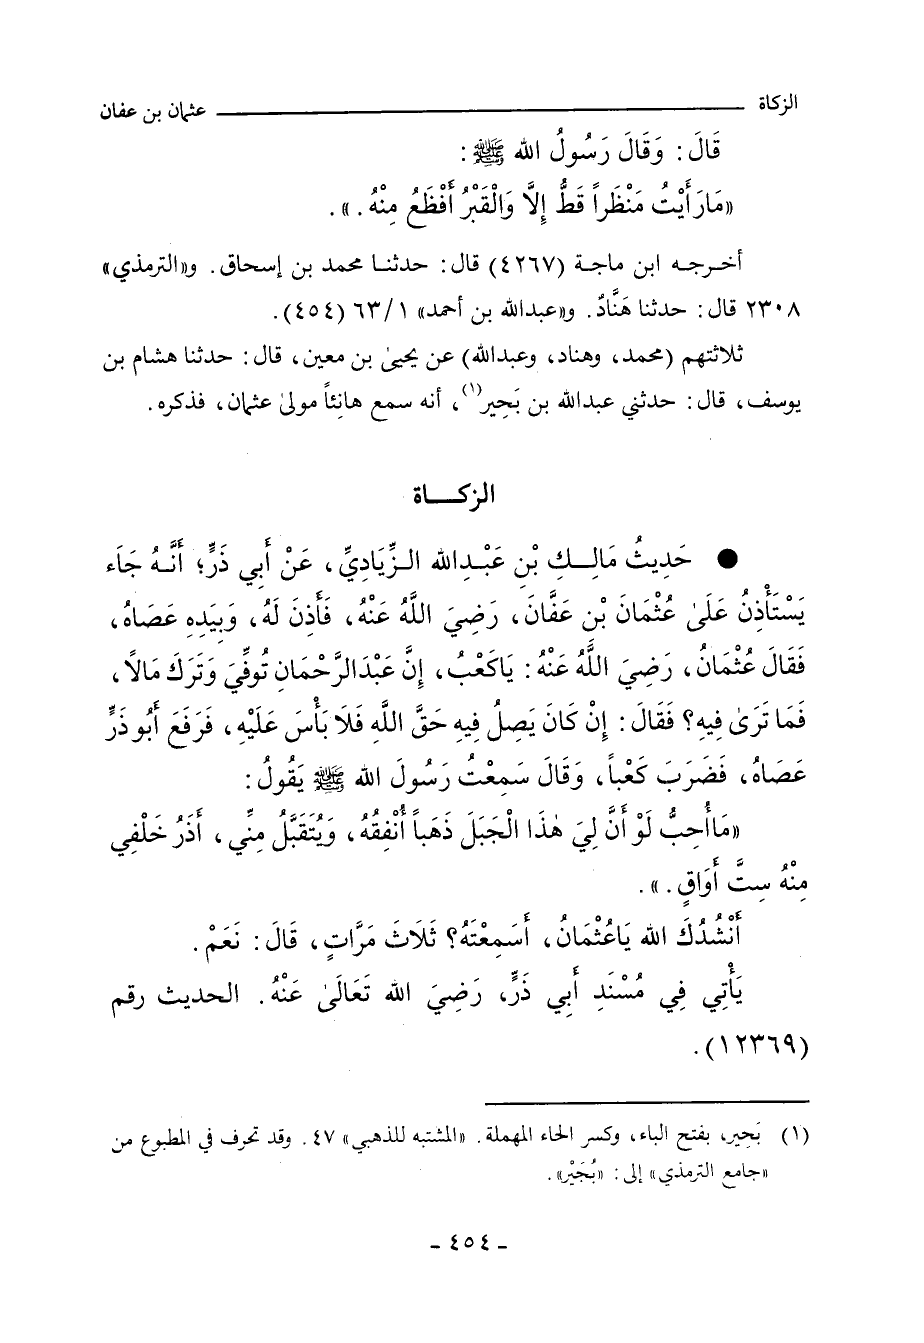 الزكاة ــــــــــــــــــــ عثمان بن عفان
قَالَ: وَقَالَ رَسُولُ الله ﷺ:
«مَارَأَيْتُ مَنْظَراً قَطُّ إِلَّا وَالْقَبْرُ أَفْظَعُ مِنْهُ.».
أخـرجـه ابن ماجة (٤٢٦٧) قال: حدثنـا محمد بن إسحاق. و«الترمذي»
٢٣٠٨ قال: حدثنا هَنَّادٌ. و«عبدالله بن أحمد» ٦٣/١ (٤٥٤).
ثلاثتهم (محمد، وهناد، وعبدالله) عن يحيىٰ بن معين، قال: حدثنا هشام بن
يوسف، قال: حدثني عبدالله بن بَحِير(١)، أنه سمع هانِئاً مولىٰ عثمان، فذكره.
الزكـــاة
● حَدِيثُ مَالِـكِ بْنِ عَبْـدِالله الـزِّيَادِيِّ، عَنْ أَبِي ذَرٍّ؛ أَنَّـهُ جَاءَ
يَسْتَأْذِنُ عَلَىٰ عُثْمَانَ بْنِ عَفَّانَ، رَضِيَ اللَّهُ عَنْهُ، فَأَذِنَ لَهُ، وَبِيَدِهِ عَصَاهُ،
فَقَالَ عُثْمَانُ، رَضِيَ اللَّهُ عَنْهُ: يَاكَعْبُ، إِنَّ عَبْدَالرَّحْمَانِ تُوفِّيَ وَتَرَكَ مَالاً،
فَمَا تَرَىٰ فِيهِ؟ فَقَالَ: إِنْ كَانَ يَصِلُ فِيهِ حَقَّ اللَّهِ فَلَا بَأْسَ عَلَيْهِ، فَرَفَعَ أَبُو ذَرٍّ
عَصَاهُ، فَضَرَبَ كَعْباً، وَقَالَ سَمِعْتُ رَسُولَ الله ﷺ يَقُولُ:
«مَاأُحِبُّ لَوْ أَنَّ لِيَ هٰذَا الْجَبَلَ ذَهَباً أُنْفِقُهُ، وَيُتَقَبَّلُ مِنِّي، أَذَرُ خَلْفِي
مِنْهُ سِتَّ أَوَاقٍ.».
أَنْشُدُكَ الله يَاعُثْمَانُ، أَسَمِعْتَهُ؟ ثَلَاثَ مَرَّاتٍ، قَالَ: نَعَمْ.
يَأْتِي فِي مُسْنَدِ أَبِي ذَرٍّ، رَضِيَ الله تَعَالَىٰ عَنْهُ. الحديث رقم
(١٢٣٦٩).
(١) بَحِير، بفتح الباء، وكسر الحاء المهملة. «المشتبه للذهبي» ٤٧. وقد تحرف في المطبوع من
«جامع الترمذي» إلى: «بُجَيْر».
- ٤٥٤ -